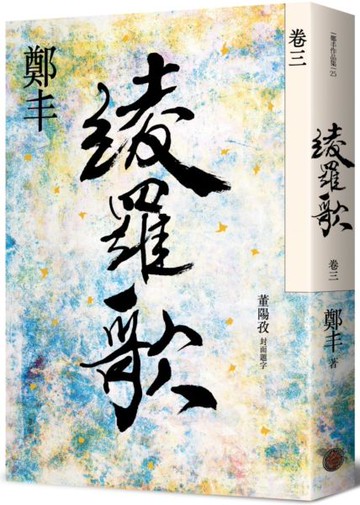 鄭丰
綾羅歌
董陽孜 封面題字
卷三
鄭丰作品集 25
綾羅歌
卷三
鄭丰 著